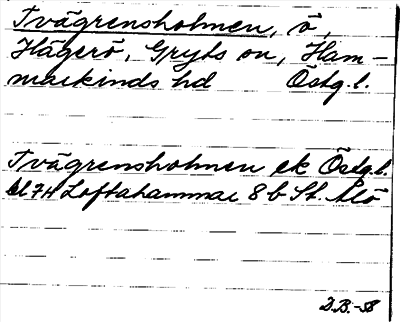 Tvägrensholmen, ö,
Hägerö, Gryts sn, Ham-
markinds hd Östg.l.
Tvägrensholmen ek Östg.l.
bl 74 Loftahammar 8 b St. Ålö
D.B.-58